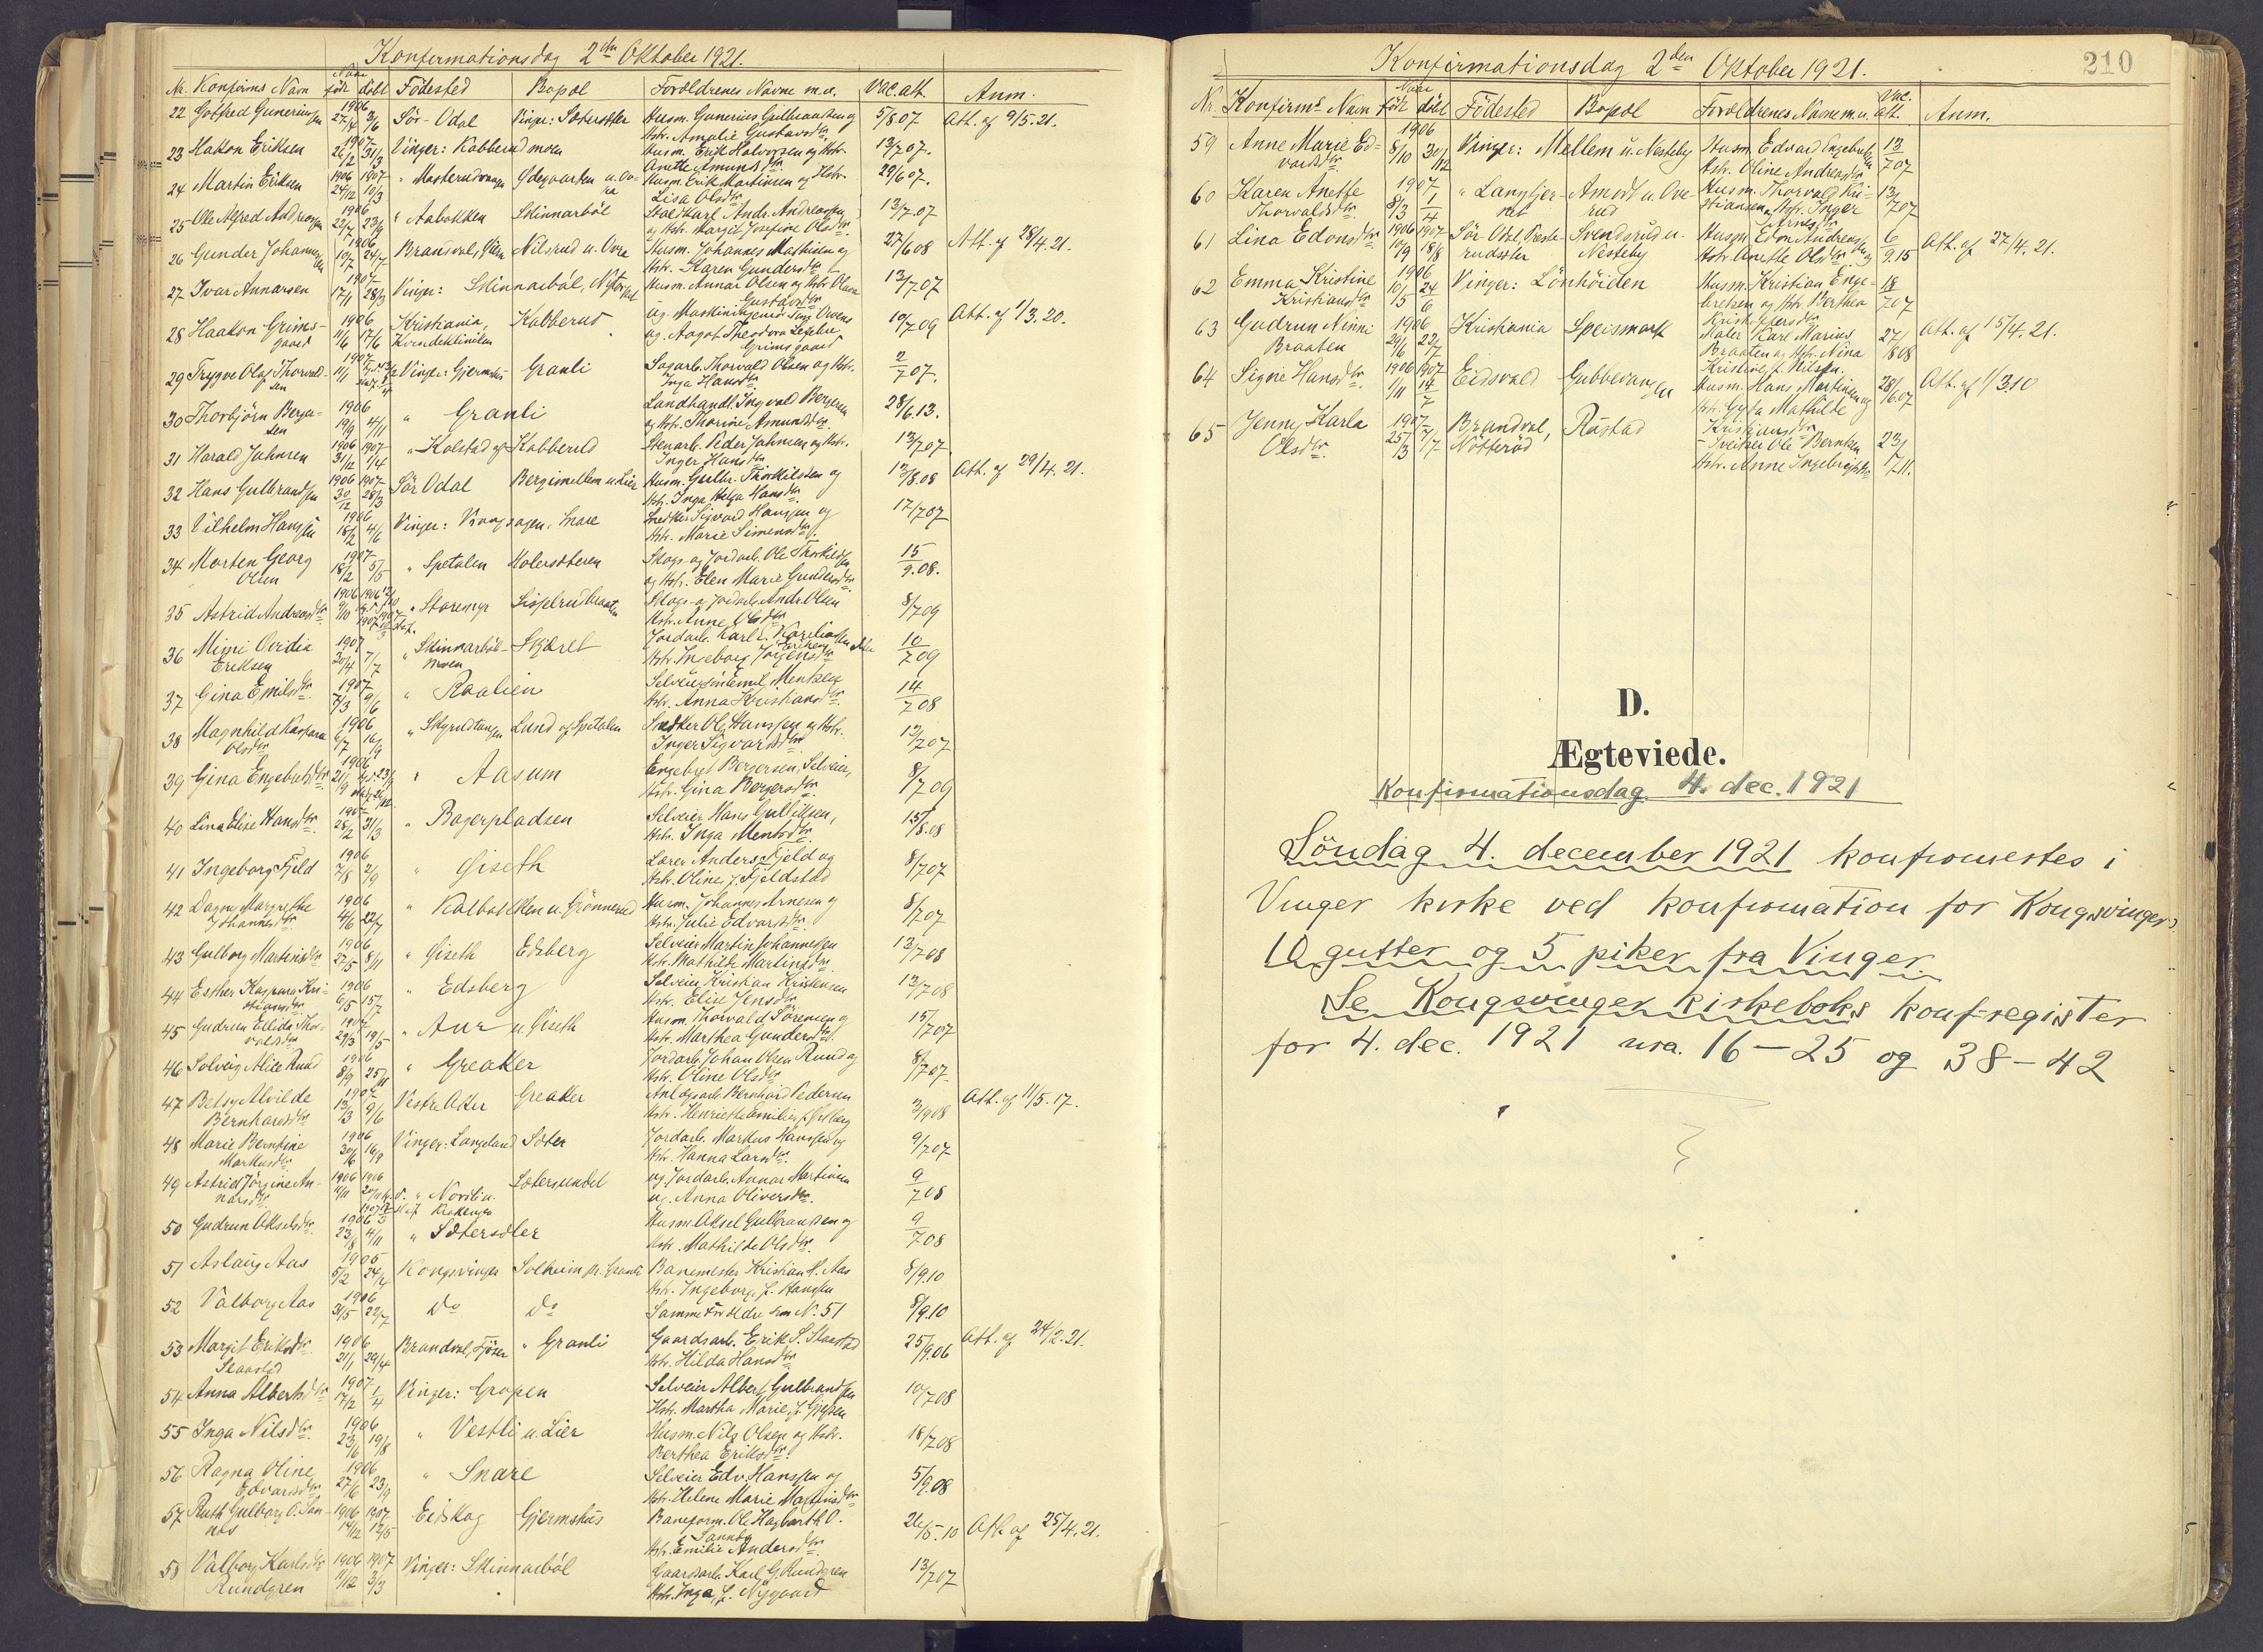 Konfirmationsdag 2den Oktober 1921.
Nr. Konfirms Navn Naar född döbt Födested Bopæl Forældrenes Navne m.v. Vac. att. Anm.
22 Gotfred Gunerius sen 1906 27/4 3/6 Sör-Odal Vinger: Sætersæter Husm. Gunerius Gulbrandsen og 5/8.07 Att. af 9/5.21.
Hstr. Amalie Gustavsdtr.
23 Hakon Eriksen 1907 26/2 31/3 Vinger: Kabberudmoen Husm. Erik Halvorsen og Hstr. 13/7.07.
Anette Amundsdtr.
24 Martin Eriksen 1906 24/12 1907 10/3 " Masterudvangen Ödegaarden u. Overud Husm. Erik Martinsen og Hstr. 29/6.07.
Lisa Olsdtr.
25 Ole Alfred Andreassen 1906 22/7 23/9 " Aabakken Skinnarböl Staldkarl Andr. Andreassen 13/7.07
og Hstr. Margit Josefine Olsdtr.
26 Gunder Johannessen 1906 10/7 24/7 Brandval, Vicen Nilsrud u. Overud Husm. Johannes Mathisen og 27/6 08 Att. af 28/4.21.
Hstr. Karen Gundersdtr.
27 Ivar Annarsen 1907 17/1 28/3 Vinger: Skinnarböl, Nytorpet Husm. Annar Olsen og Hstr. Olava 13/7.07
Gustavsdtr.
28 Haakon Grimsgaard 1906 11/6 17/6 Kristiania, Kvindekliniken Kabberud ug. Maskiningeniör Owens 10/7 09 Att. af 1/3.20.
ug. Aagot Theodora
Grimsgaard
29 Trygve Olaf Thorvaldsen 1907 11/1 Vinger: Gjermshus Granli Sagarb. Thorvald Olsen og Hstr. 2/7 07.
Inga Hansdtr.
30 Thorbjörn Bergersen 1906 19/9 4/11 " Granli Landhandl. Ingvald Bergersen 28/6.13.
og Hstr. Thorine Amundsdtr.
31 Harald Johnsen 1906 31/12 1907 1/4 " Kolstad af Kabberud Stenarb. Peder Johnsen og Hstr. 13/7.07
Inger Hansdtr.
32 Hans Gulbrandsen 1906 30/12 1907 28/3 Sör Odal Bergimellem u. Lier Husm. Gulbr. Thorkildsen og 13/8.08 Att. af 29/4.21.
Hstr. Inga Helga Hansdtr.
33 Vilhelm Hanssen 1906 18/2 4/6 Vinger: Vrangsagen, Snare Snedker Sigvard Hanssen og 17/7 07
Hstr. Marie Simensdtr.
34 Morten Georg Olsen 1907 18/2 5/5 " Spetalen Holersæteren Skogs- og Jordarb. Ole Thorkildsen 15/9.08.
og Hstr. Elen Marie Gundersdtr.
35 Astrid Andreasdtr. 1906 9/10 " Storemyr Sisselrudbraaten Skogs- og Jordarb. Andr. Olsen 8/7 09
Hstr. Anne Olsdtr.
36 Mimi Ovidia Eriksen 1907 30/4 7/7 " Skinnarböl-moen Skjæret Jordarb. Karl E. Eriksen 10/7 09
Hstr. Ingeborg Jörgensdtr.
37 Gina Emilsdtr. 1907 7/3 9/6 " Raalien Selveiersön Emil Mentzen 14/7 08
Hstr. Anna Kristiansdtr.
38 Magnhild Kaspara Olsdtr. 1906 6/7 16/9 " Skyrudtangen Lund af Spetalen Snedker Ole Hanssen og Hstr. 13/7.07
Inger Sigvardsdtr.
39 Gina Engebretsdtr. 1906 21/9 " Aasum Engebret Bergersen, Selveier, 8/7 09
Hstr. Gina Bergersdtr.
40 Lina Elise Hansdtr. 1907 28/2 31/3 " Bagerpladsen Selveier Hans Gulliksen, 15/8.08
Hstr. Inga Mentsdtr.
41 Ingeborg Fjeld 1906 7/8 2/9 " Giseth Lærer Anders Fjeld og 8/7 07
Hstr. Oline f. Fjeldstad
42 Dagny Margrethe Johannesdtr. 1906 4/6 22/7 " Kalbakken u. Grönnerud Husm. Johannes Arnesen og 8/7 07
Hstr. Julie Edvardsdtr.
43 Gulborg Martinsdtr. 1906 27/5 8/11 " Giseth Edsberg Selveier Martin Johannessen 13/7 08
Hstr. Mathilde Martinsdtr.
44 Esther Kaspara Kristiansdtr. 1906 6/5 15/7 " Edsberg Selveier Kristian Kristensen 13/7 08
Hstr. Elise Jensdtr.
45 Gudrun Ellida Thorvaldsdtr. 1907 29/3 19/5 " Aur u. Giseth Husm. Thorvald Sörensen og 15/7 07
Hstr. Marthea Gundersdtr.
46 Solveig Alice Ruud 1906 8/9 25/11 " Greaker Jordarb. Johan Olsen Ruud og 8/7 07.
Hstr. Oline Olsdtr.
47 Betsy Alvilde Bernhardsdtr. 1907 13/3 9/6 Vestre Aker Greaker Anlægsarb. Bernhard Pedersen 3/9 08 Att. af 11/5.17.
Hstr. Henriette Emilie f.
48 Marie Berntine Markusdtr. 1906 30/6 16/9 Vinger: Langeland Sæter Jordarb. Markus Hanssen og 9/7 07
Hstr. Hanna Larsdtr.
49 Astrid Jörgine Annarsdtr. 1906 11/11 " Nordli u. Sætersundet ug. Jordarb. Annar Martinsen 9/7 08
ug. Anna Oliversdtr.
50 Gudrun Akselsdtr. 1906 23/8 4/11 " Sætersæter Husm. Aksel Gulbrandsen og 9/7 08
Hstr. Mathilde Olsdtr.
51 Aslaug Aas 1905 5/2 24/4 Kongsvinger Solheim pr. Granli Banemester Kristian H. Aas 8/9.10
Hstr. Ingeborg, f. Hanssen
52 Valborg Aas 1906 31/5 22/7 Do Do Samme Forældre som N. 51 8/9.10
53 Margit Eriksdtr. Skaarstad 1906 21/1 29/4 Brandval, " Granli Gaardsarb. Erik S. Skaarstad 25/9.06 Att. af 24/2.21.
Hstr. Hilda Hansdtr.
54 Anna Albertsdtr. 1907 17/2 1/4 Vinger: Gropen Selveier Albert Gulbrandsen 10/7 08
Hstr. Martha Marie, f. Gjersen
55 Inga Nilsdtr. 1906 23/6 19/8 " Vestli u. Lier Husm. Nils Olsen og Hstr. 18/7 08
Berthea Eriksdtr.
56 Ragna Oline Edvardsdtr. 1906 27/6 23/9 " Snare Selveier Edv. Hanssen og 5/9.08
Hstr. Helene Marie Martinsdtr.
57 Ruth Gulborg O. Sannæs 1906 14/12 1907 12/5 Eidskog Gjermshus Baneform. Ole Hagbarth O. 26/5.10 Att. af 25/4.21.
Sannæs
Hstr. Emilie Andersdtr.
58 Valborg Karlsdtr. Rundgren 1906 11/12 1907 3/3 Vinger: Skinnarböl Gaardsarb. Karl G. Rundgren 13/7 07
Hstr. Inga, f. Nygaard
210
Konfirmationsdag 2den Oktober 1921.
Nr. Konfirms Navn Naar född döbt Födested Bopæl Forældrenes Navne m.v. Vac. att. Anm.
59 Anne Marie Edvardsdtr. 1906 8/10 30/12 Vinger: Mellem u. Nesteby Husm. Edvard Engebretsen 13/7 07
Hstr. Oline Andreasdtr.
60 Karen Anette Thorvaldsdtr. 1907 8/3 1/4 " Langtjernet Amodt u. Overud Husm. Thorvald Kristiansen og Hstr. Inger 13/7 07
Arnesdtr.
61 Lina Edonsdtr. 1906 10/9 1907 18/8 Sör Odal, Svendsrud u. Nesteby Husm. Edon Andreassen og 6/9.15 Att. af 27/4.21.
Hstr. Anette Olsdtr.
62 Emma Kristine Kristiansdtr. 1906 10/5 24/6 Vinger: Lönhöiden Husm. Kristian Engebretsen og Hstr. Berthea 18/7 07
Kristoffersdtr.
63 Gudrun Ninni Braaten 1906 29/6 22/7 Kristiania Speismark Maler Karl Marius 27/8 08 Att. af 15/4.21.
Braaten og Hstr. Nina
Kristine, f. Nilsen.
64 Signe Hansdtr. 1906 1/11 1907 14/7 Eidsvold Gubbevangen Husm. Hans Martinsen og 28/6.07 Att. af 1/3.10
Hstr. Gyda Mathilde
Kristiansdtr.
65 Jenny Karla Olsdtr. 1907 25/3 7/7 Brandval, Nötteröd Rustad Sveitser Ole Berntsen 23/7.11.
Hstr. Anne Ingebrigtsdtr.
D.
Ægteviede.
Konfirmationsdag 4. dec. 1921
Söndag 4. december 1921 konfirmertes i
Vinger kirke ved konfirmation for Kongsvinger
10 gutter og 5 piker fra Vinger.
Se Kongsvinger kirkeboks konf-register
for 4. dec. 1921 nra. 16 – 25 og 38 – 42